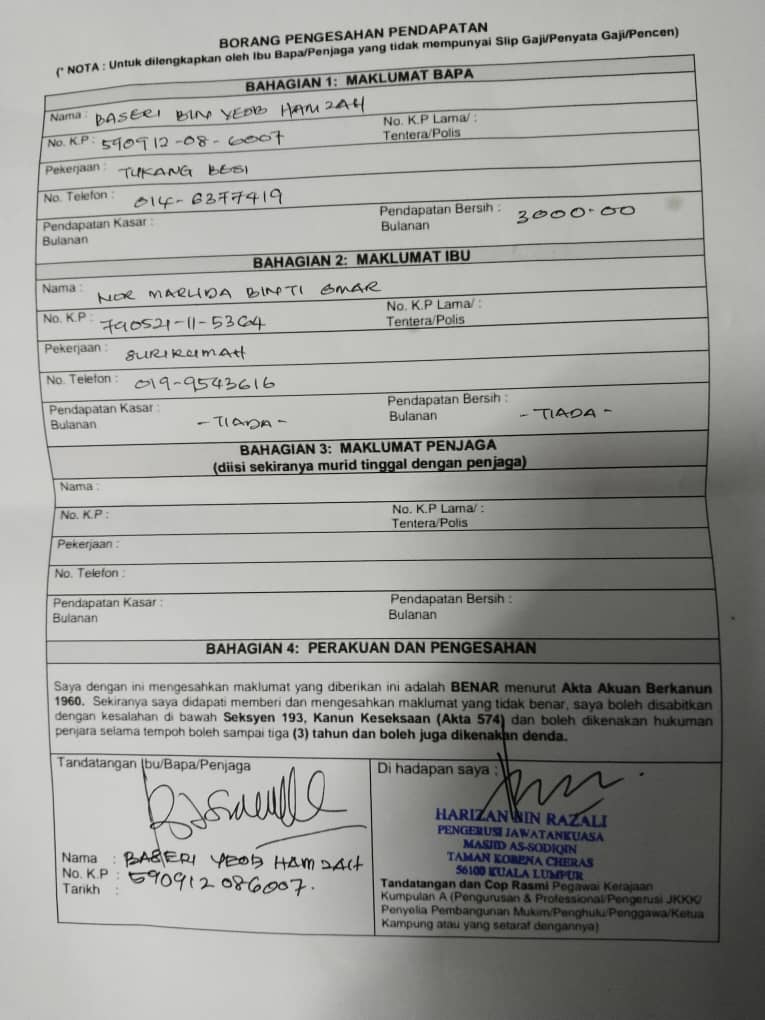 BORANG PENGESAHAN PENDAPATAN
(* NOTA : Untuk dilengkapkan oleh Ibu Bapa/Penjaga yang tidak mempunyai Slip Gaji/Penyata Gaji/Pencen)
BAHAGIAN 1: MAKLUMAT BAPA
Nama : BASERI BIN YEOB HAMZAH
No. K.P : 590912-08-6007 No. K.P Lama/ :
Tentera/Polis
Pekerjaan : TUKANG BESI
No. Telefon : 014-6377419
Pendapatan Kasar : Pendapatan Bersih : 3000.00
Bulanan Bulanan
BAHAGIAN 2: MAKLUMAT IBU
Nama : NOR MARLIDA BINTI OMAR
No. K.P : 790521-11-5364 No. K.P Lama/ :
Tentera/Polis
Pekerjaan : SURIRUMAH
No. Telefon : 019-9543616
Pendapatan Kasar : - TIADA - Pendapatan Bersih : - TIADA -
Bulanan Bulanan
BAHAGIAN 3: MAKLUMAT PENJAGA
(diisi sekiranya murid tinggal dengan penjaga)
Nama :
No. K.P : No. K.P Lama/ :
Tentera/Polis
Pekerjaan :
No. Telefon :
Pendapatan Kasar : Pendapatan Bersih :
Bulanan Bulanan
BAHAGIAN 4: PERAKUAN DAN PENGESAHAN
Saya dengan ini mengesahkan maklumat yang diberikan ini adalah BENAR menurut Akta Akuan Berkanun
1960. Sekiranya saya didapati memberi dan mengesahkan maklumat yang tidak benar, saya boleh disabitkan
dengan kesalahan di bawah Seksyen 193, Kanun Keseksaan (Akta 574) dan boleh dikenakan hukuman
penjara selama tempoh boleh sampai tiga (3) tahun dan boleh juga dikenakan denda.
Tandatangan Ibu/Bapa/Penjaga
Nama : BASERI YEOB HAMZAH
No. K.P : 590912086007.
Tarikh :
Di hadapan saya :
HARIZAN BIN RAZALI
PENGERUSI JAWATANKUASA
MASJID AS-SODIQIN
TAMAN KOBENA CHERAS
56100 KUALA LUMPUR
Tandatangan dan Cop Rasmi Pegawai Kerajaan
Kumpulan A (Pengurusan & Professional/Pengerusi JKKK/
Penyelia Pembangunan Mukim/Penghulu/Penggawa/Ketua
Kampung atau yang setaraf dengannya)